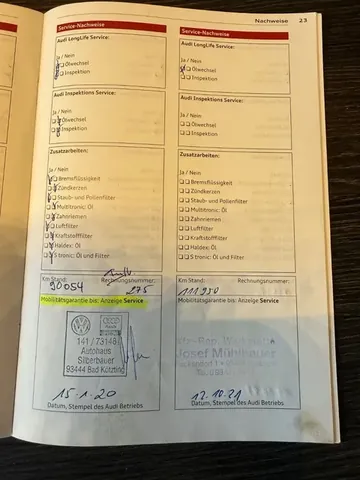 Nachweise 23
Service-Nachweise
Audi LongLife Service:
Ja / Nein
Ölwechsel
Inspektion
Audi Inspektions Service:
Ja / Nein
Ölwechsel
Inspektion
Zusatzarbeiten:
Ja / Nein
Bremsflüssigkeit
Zündkerzen
Staub- und Pollenfilter
Multitronic: Öl
Zahnriemen
Luftfilter
Kraftstofffilter
Haldex: Öl
S tronic: Öl und Filter
Km Stand: Rechnungsnummer:
90054 275
Mobilitätsgarantie bis: Anzeige Service
141 / 73148
Autohaus
Silberbauer
93444 Bad Kötzting
15.1.20
Datum, Stempel des Audi Betriebs
Service-Nachweise
Audi LongLife Service:
Ja / Nein
Ölwechsel
Inspektion
Audi Inspektions Service:
Ja / Nein
Ölwechsel
Inspektion
Zusatzarbeiten:
Ja / Nein
Bremsflüssigkeit
Zündkerzen
Staub- und Pollenfilter
Multitronic: Öl
Zahnriemen
Luftfilter
Kraftstofffilter
Haldex: Öl
S tronic: Öl und Filter
Km Stand: Rechnungsnummer:
111950
Mobilitätsgarantie bis: Anzeige Service
Josef Mühlbauer
12.10.21
Datum, Stempel des Audi Betriebs